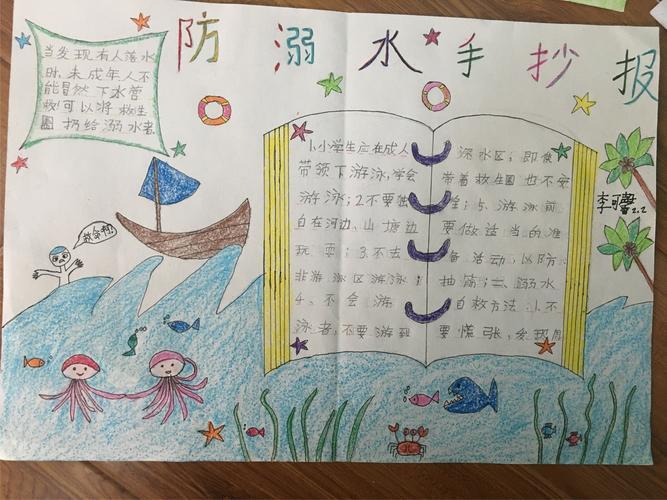 防溺水手抄报
当发现有人落水
时,未成年人不
能冒然下水营
救!可以将救生
圈扔给溺水者.
救命啊!
1.小学生应在成人
带领下游泳,学会
游泳;2.不要独
自在河边、山塘边
玩耍;3.不去
非游泳区游泳;
4、不会游
泳者,不要游到
深水区;即使
带着救生圈也不安
全;5、游泳前
要做适当的准
备活动,以防
抽筋;二、溺水
自救方法:1.不
要慌张,发现周
李可馨
2.2